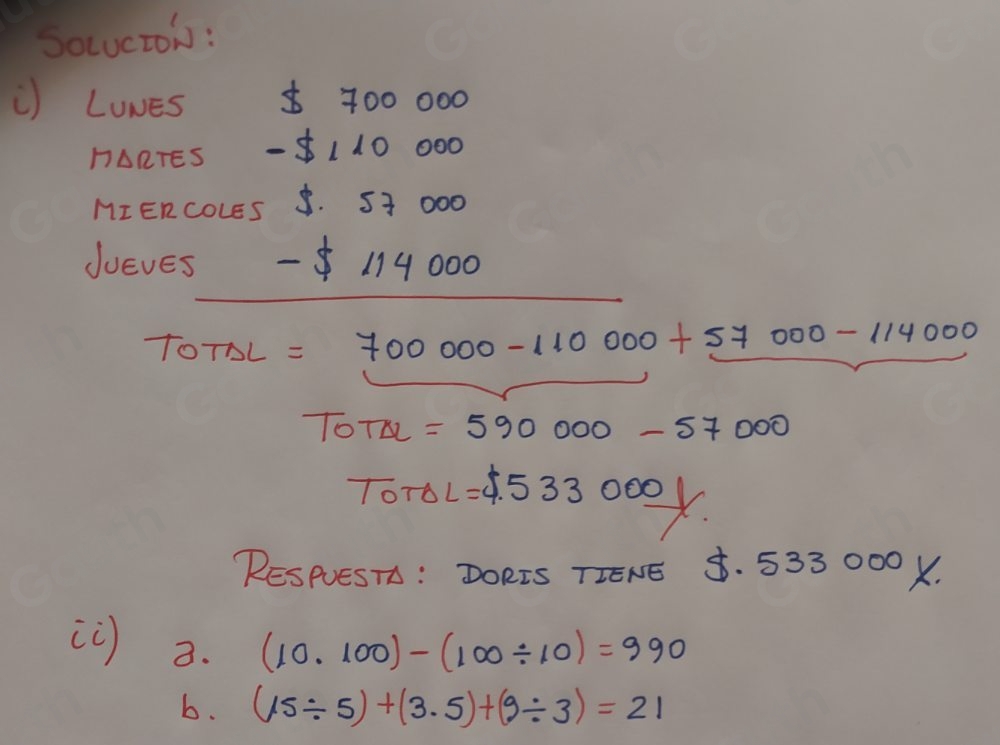 SOLUCIÓN:
i) LUNES $ 700 000
MARTES -$ 110 000
MIERCOLES $. 57 000
JUEVES -$ 114 000
TOTAL = 700 000 - 110 000 + 57 000 - 114 000
TOTAL = 590 000 - 57 000
TOTAL = $.533 000
RESPUESTA: DORIS TIENE $. 533 000
ii) a. (10. 100) - (100 ÷ 10) = 990
b. (15 ÷ 5) + (3.5) + (9 ÷ 3) = 21